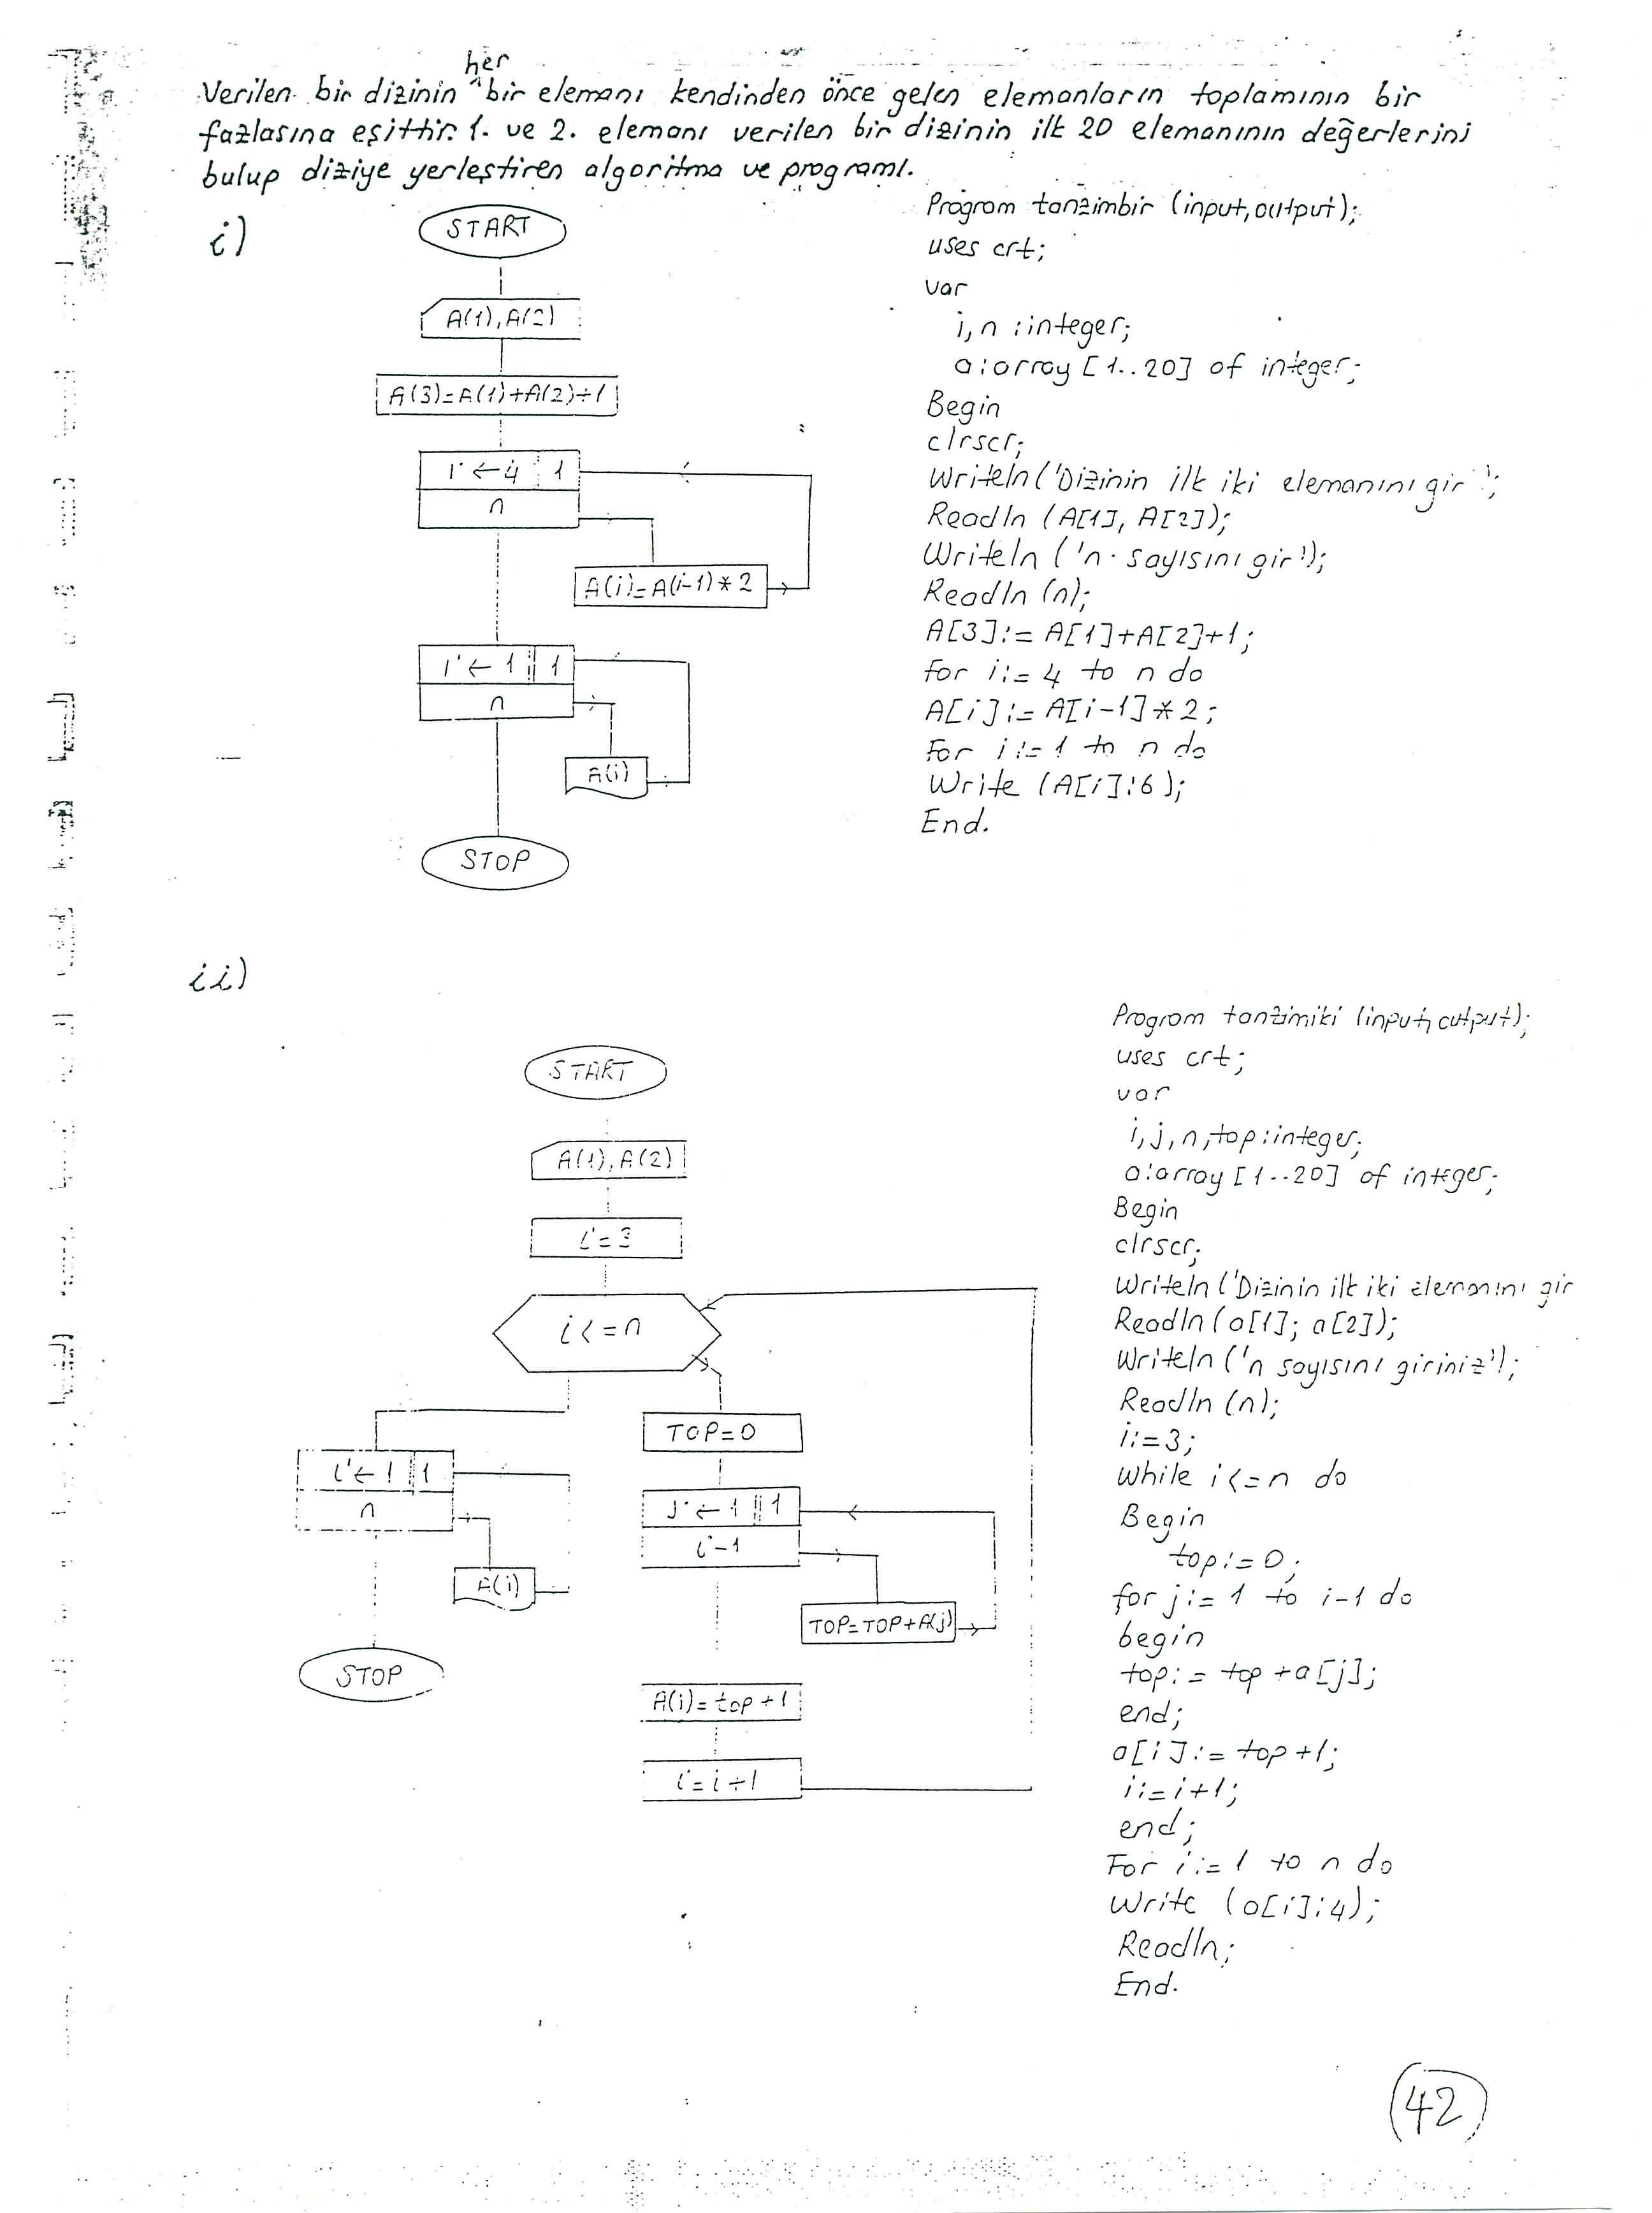 her
Verilen bir dizinin ^bir elemanı kendinden önce gelen elemanların toplamının bir
fazlasına eşittir. 1. ve 2. elemanı verilen bir dizinin ilk 20 elemanının değerlerini
bulup diziye yerleştiren algoritma ve programı.
i)
START
A(1), A(2)
A(3)=A(1)+A(2)+1
i ← 4 1
n
A(i)=A(i-1)*2
i ← 1 1
n
A(i)
STOP
Program tanzimbir (input, output);
uses crt;
var
i, n : integer;
a : array [1..20] of integer;
Begin
clrscr;
Writeln ('Dizinin ilk iki elemanını gir');
Readln (A[1], A[2]);
Writeln ('n. sayısını gir');
Readln (n);
A[3] := A[1]+A[2]+1;
for i := 4 to n do
A[i] := A[i-1]*2;
For i := 1 to n do
Write (A[i]:6);
End.
ii)
START
A(1), A(2)
i = 3
i <= n
i ← 1 1
n
A(i)
STOP
TOP=0
J ← 1 1
i-1
TOP=TOP+A(j)
A(i)= top+1
i = i+1
Program tanzimiki (input, output);
uses crt;
var
i, j, n, top : integer;
a : array [1..20] of integer;
Begin
clrscr;
Writeln ('Dizinin ilk iki elemanını gir
Readln (a[1]; a[2]);
Writeln ('n sayısını giriniz');
Readln (n);
i := 3;
While i <= n do
Begin
top := 0;
for j := 1 to i-1 do
begin
top := top + a[j];
end;
a[i] := top+1;
i := i+1;
end;
For i := 1 to n do
Write (a[i]:4);
Readln;
End.
(42)